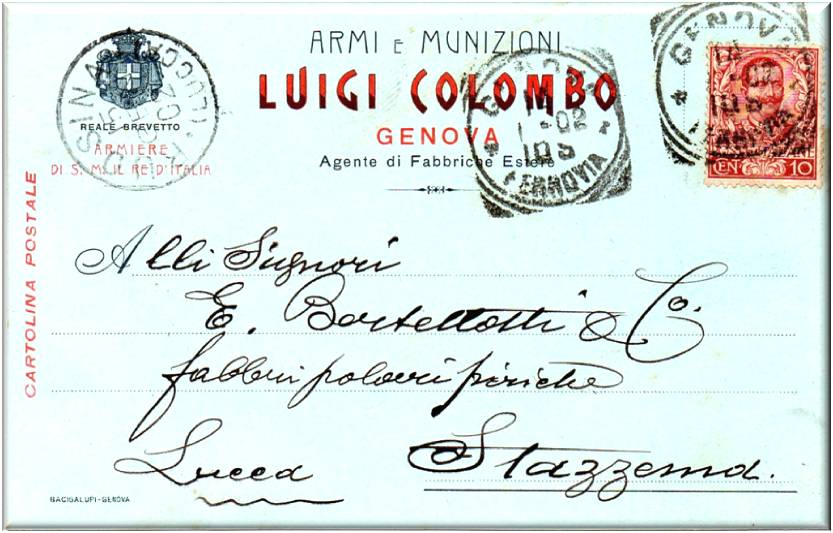 ARMI E MUNIZIONI
LUIGI COLOMBO
GENOVA
Agente di Fabbriche Estere
REALE BREVETTO
ARMIERE
DI S. M. IL RE D'ITALIA
CARTOLINA POSTALE
GENOVA
FERROVIA
02
10 S
GENOVA
FERROVIA
02
10 S
CEN 10
(LUCCA)
Alli Signori
E. Bertellotti & Co.
fabbri polveri piriche
Lucca Stazzema.
BACIGALUPI-GENOVA